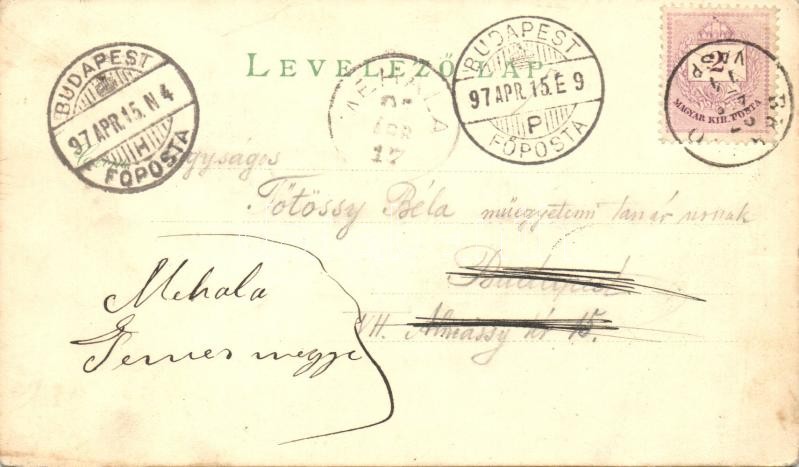 LEVELEZŐ LAP
BUDAPEST
97 APR. 15. N 4
H
FŐPOSTA
MEHALA
APR
17
BUDAPEST
97 APR. 15. E 9
P
FŐPOSTA
2
MAGYAR KIR. POSTA
Nagyságos
Tőtössy Béla műegyetemi tanár urnak
Budapest
VII. Almássy tér 15.
Mehala
Temes megye